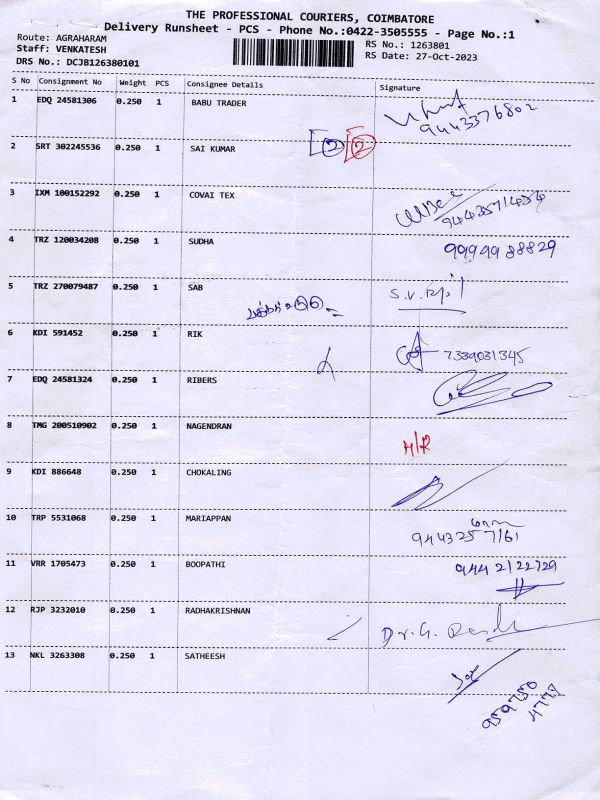 THE PROFESSIONAL COURIERS, COIMBATORE
Delivery Runsheet - PCS - Phone No.:0422-3505555 - Page No.:1
Route: AGRAHARAM
RS No.: 1263801
Staff: VENKATESH
RS Date: 27-Oct-2023
DRS No.: DCJB126380101
S No Consignment No Weight PCS Consignee Details Signature
1 EDQ 24581306 0.250 1 BABU TRADER
9443376802
2 SRT 302245536 0.250 1 SAI KUMAR 2 2
3 IXM 100152292 0.250 1 COVAI TEX
4 TRZ 120034208 0.250 1 SUDHA 9994988829
5 TRZ 270079487 0.250 1 SAB
6 KDI 591452 0.250 1 RIK 7339031345
7 EDQ 24581324 0.250 1 RIBERS
8 TMG 200510902 0.250 1 NAGENDRAN
9 KDI 886648 0.250 1 CHOKALING
10 TRP 5531068 0.250 1 MARIAPPAN
9443257161
11 VRR 1705473 0.250 1 BOOPATHI 9442122729
12 RJP 3232010 0.250 1 RADHAKRISHNAN
13 NKL 3263308 0.250 1 SATHEESH
959750
4778